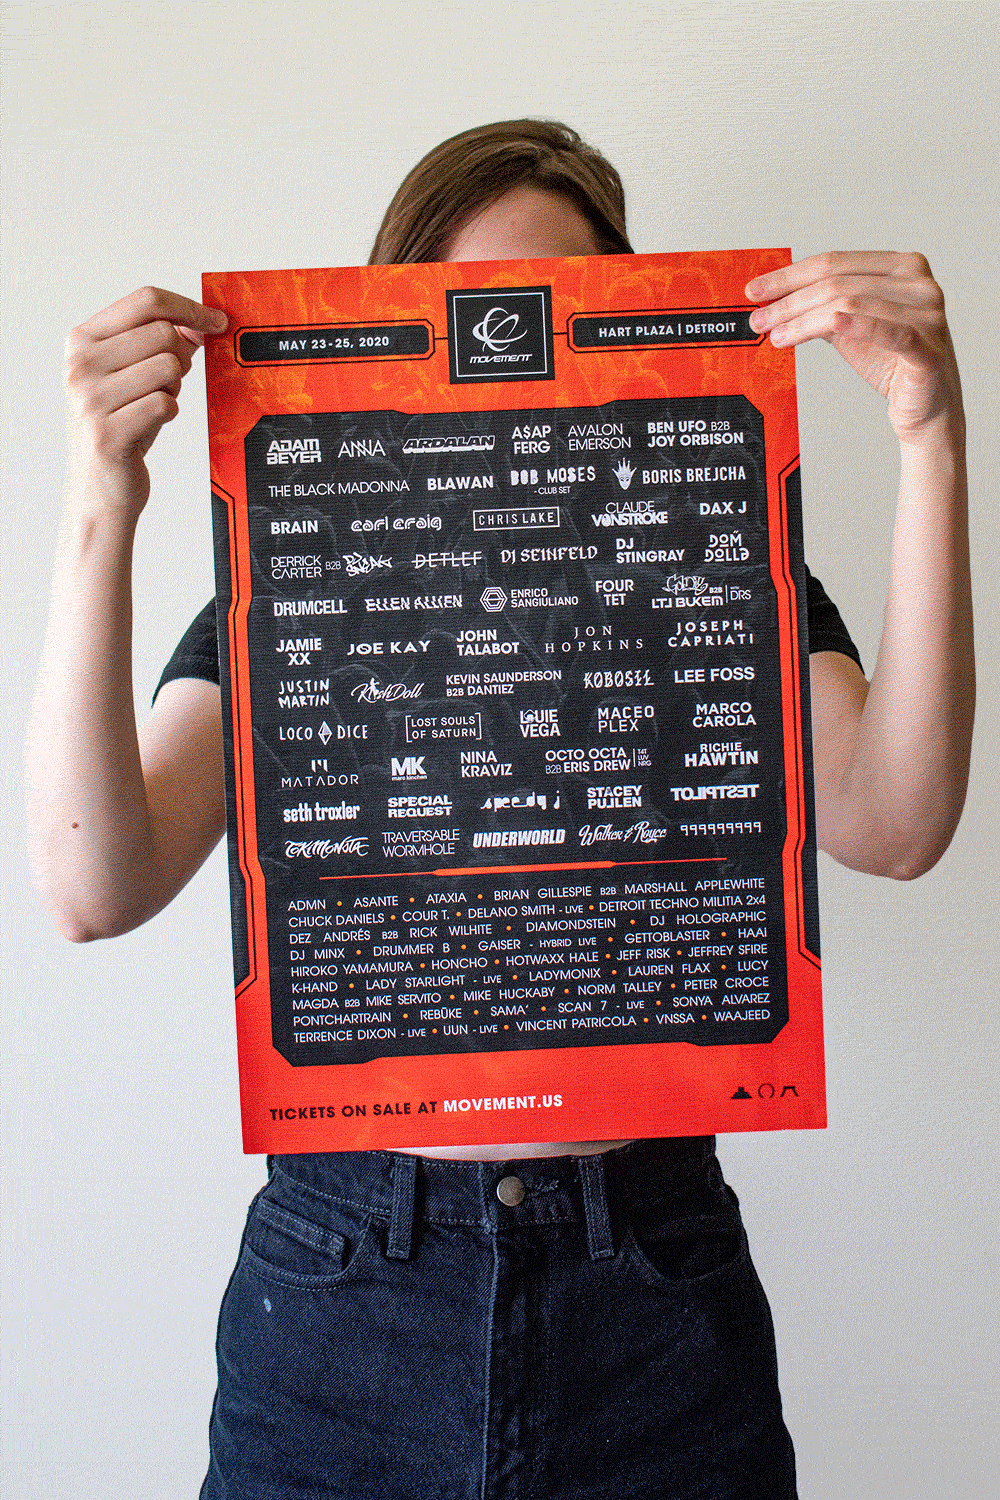 MAY 23-25, 2020
MOVEMENT
HART PLAZA | DETROIT
ADAM BEYER ANNA ARDALAN A$AP FERG AVALON EMERSON BEN UFO B2B JOY ORBISON
THE BLACK MADONNA BLAWAN BOB MOSES - CLUB SET BORIS BREJCHA
BRAIN carl craig CHRIS LAKE CLAUDE VONSTROKE DAX J
DERRICK CARTER B2B DETLEF DJ SEINFELD DJ STINGRAY DOM DOLLA
DRUMCELL ELLEN ALLIEN ENRICO SANGIULIANO FOUR TET GOLDIE B2B LTJ BUKEM DRS
JAMIE XX JOE KAY JOHN TALABOT JON HOPKINS JOSEPH CAPRIATI
JUSTIN MARTIN KashDoll KEVIN SAUNDERSON B2B DANTIEZ KOBOSIL LEE FOSS
LOCO DICE LOST SOULS OF SATURN LOUIE VEGA MACEO PLEX MARCO CAROLA
MATADOR MK marc kinchen NINA KRAVIZ OCTO OCTA B2B ERIS DREW T4T LUV NRG RICHIE HAWTIN
seth troxler SPECIAL REQUEST speedy j STACEY PULLEN TESTPILOT
TOKiMONSTA TRAVERSABLE WORMHOLE UNDERWORLD Walker & Royce 999999999
ADMN • ASANTE • ATAXIA • BRIAN GILLESPIE B2B MARSHALL APPLEWHITE
CHUCK DANIELS • COUR T. • DELANO SMITH - LIVE • DETROIT TECHNO MILITIA 2x4
DEZ ANDRÉS B2B RICK WILHITE • DIAMONDSTEIN • DJ HOLOGRAPHIC
DJ MINX • DRUMMER B • GAISER - HYBRID LIVE • GETTOBLASTER • HAAI
HIROKO YAMAMURA • HONCHO • HOTWAXX HALE • JEFF RISK • JEFFREY SFIRE
K-HAND • LADY STARLIGHT - LIVE • LADYMONIX • LAUREN FLAX • LUCY
MAGDA B2B MIKE SERVITO • MIKE HUCKABY • NORM TALLEY • PETER CROCE
PONTCHARTRAIN • REBŪKE • SAMA' • SCAN 7 - LIVE • SONYA ALVAREZ
TERRENCE DIXON - LIVE • UUN - LIVE • VINCENT PATRICOLA • VNSSA • WAAJEED
TICKETS ON SALE AT MOVEMENT.US